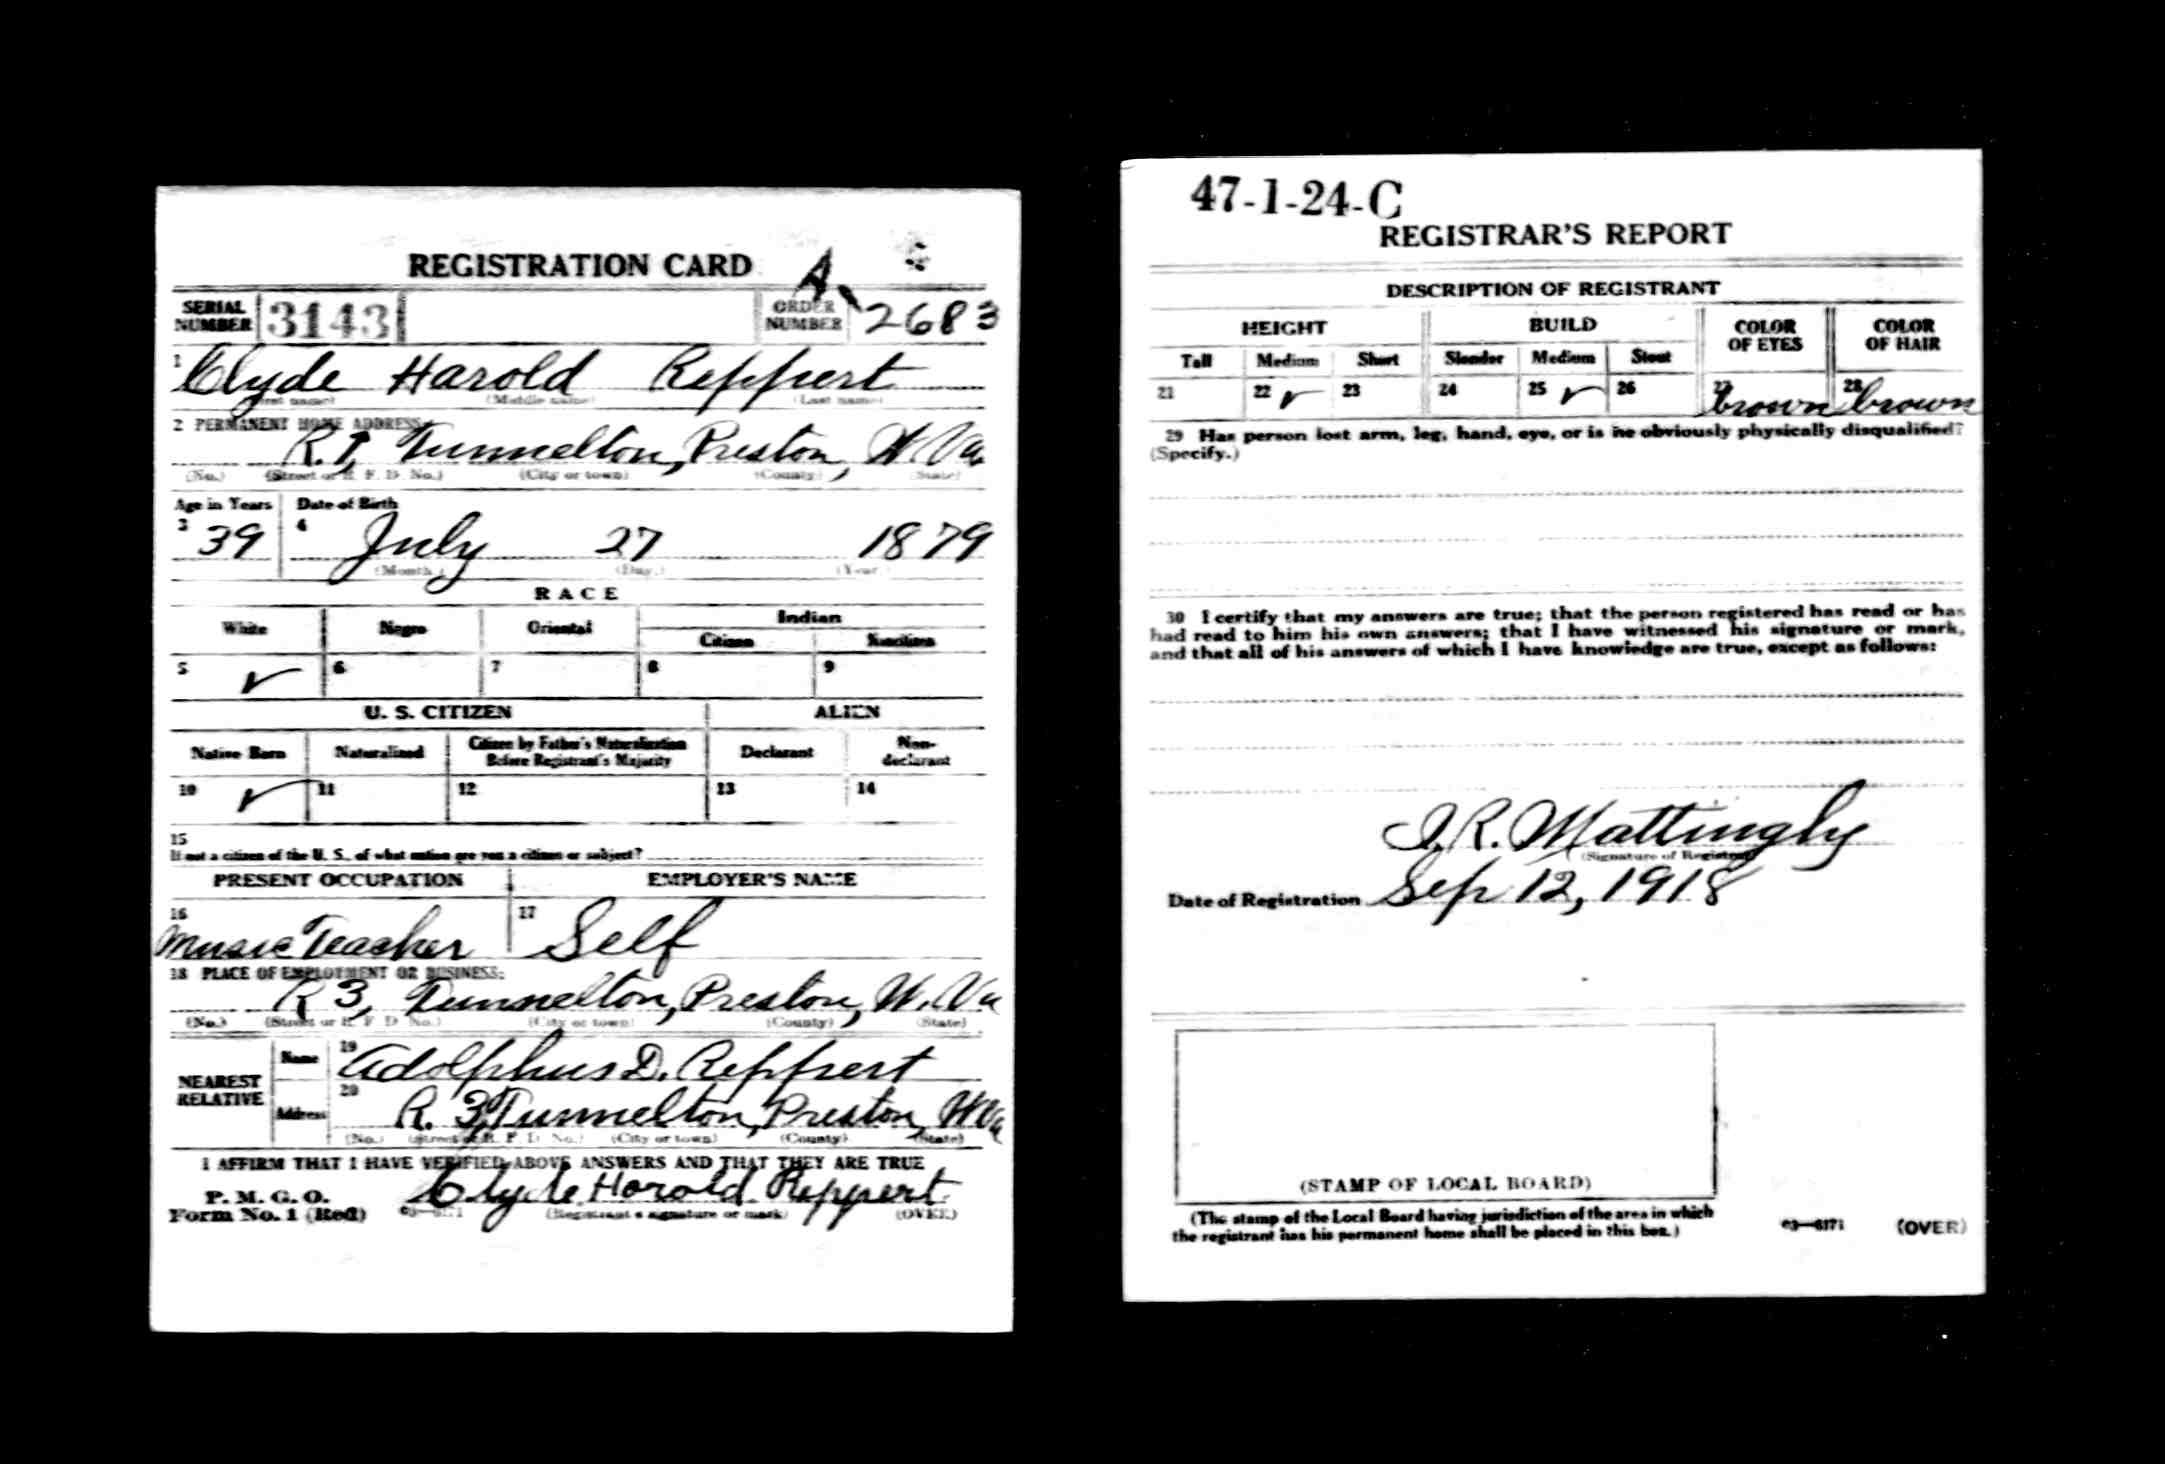 REGISTRATION CARD
SERIAL NUMBER 3143 ORDER NUMBER A 2683
1 Clyde Harold Reppert
(First name) (Middle name) (Last name)
2 PERMANENT HOME ADDRESS:
R. 1, Tunnelton, Preston, W. Va.
(No.) (Street or R. F. D. No.) (City or town) (County) (State)
Age in Years Date of Birth
3 39 4 July 27 1879
(Month.) (Day.) (Year.)
RACE
White Negro Oriental Indian
Citizen Noncitizen
5 ✓ 6 7 8 9
U. S. CITIZEN ALIEN
Native Born Naturalized Citizen by Father's Naturalization Before Registrant's Majority Declarant Non-declarant
10 ✓ 11 12 13 14
15
If not a citizen of the U. S., of what nation are you a citizen or subject?
PRESENT OCCUPATION EMPLOYER'S NAME
16 Music Teacher 17 Self
18 PLACE OF EMPLOYMENT OR BUSINESS:
R 3, Tunnelton, Preston, W. Va
(No.) (Street or R. F. D. No.) (City or town) (County) (State)
NEAREST RELATIVE
Name 19 Adolphus D. Reppert
Address 20 R. 3, Tunnelton, Preston, W Va
(No.) (Street or R. F. D. No.) (City or town) (County) (State)
I AFFIRM THAT I HAVE VERIFIED ABOVE ANSWERS AND THAT THEY ARE TRUE
P. M. G. O.
Form No. 1 (Red) 03—6171 Clyde Harold Reppert
(Registrant's signature or mark) (OVER)
47-1-24-C
REGISTRAR'S REPORT
DESCRIPTION OF REGISTRANT
HEIGHT BUILD COLOR OF EYES COLOR OF HAIR
Tall Medium Short Slender Medium Stout
21 22 ✓ 23 24 25 ✓ 26 27 brown 28 brown
29 Has person lost arm, leg, hand, eye, or is he obviously physically disqualified?
(Specify.)
30 I certify that my answers are true; that the person registered has read or has
had read to him his own answers; that I have witnessed his signature or mark,
and that all of his answers of which I have knowledge are true, except as follows:
J. R. Mattingly
(Signature of Registrar)
Date of Registration Sep 12, 1918
(STAMP OF LOCAL BOARD)
(The stamp of the Local Board having jurisdiction of the area in which
the registrant has his permanent home shall be placed in this box.)
03—6171 (OVER)